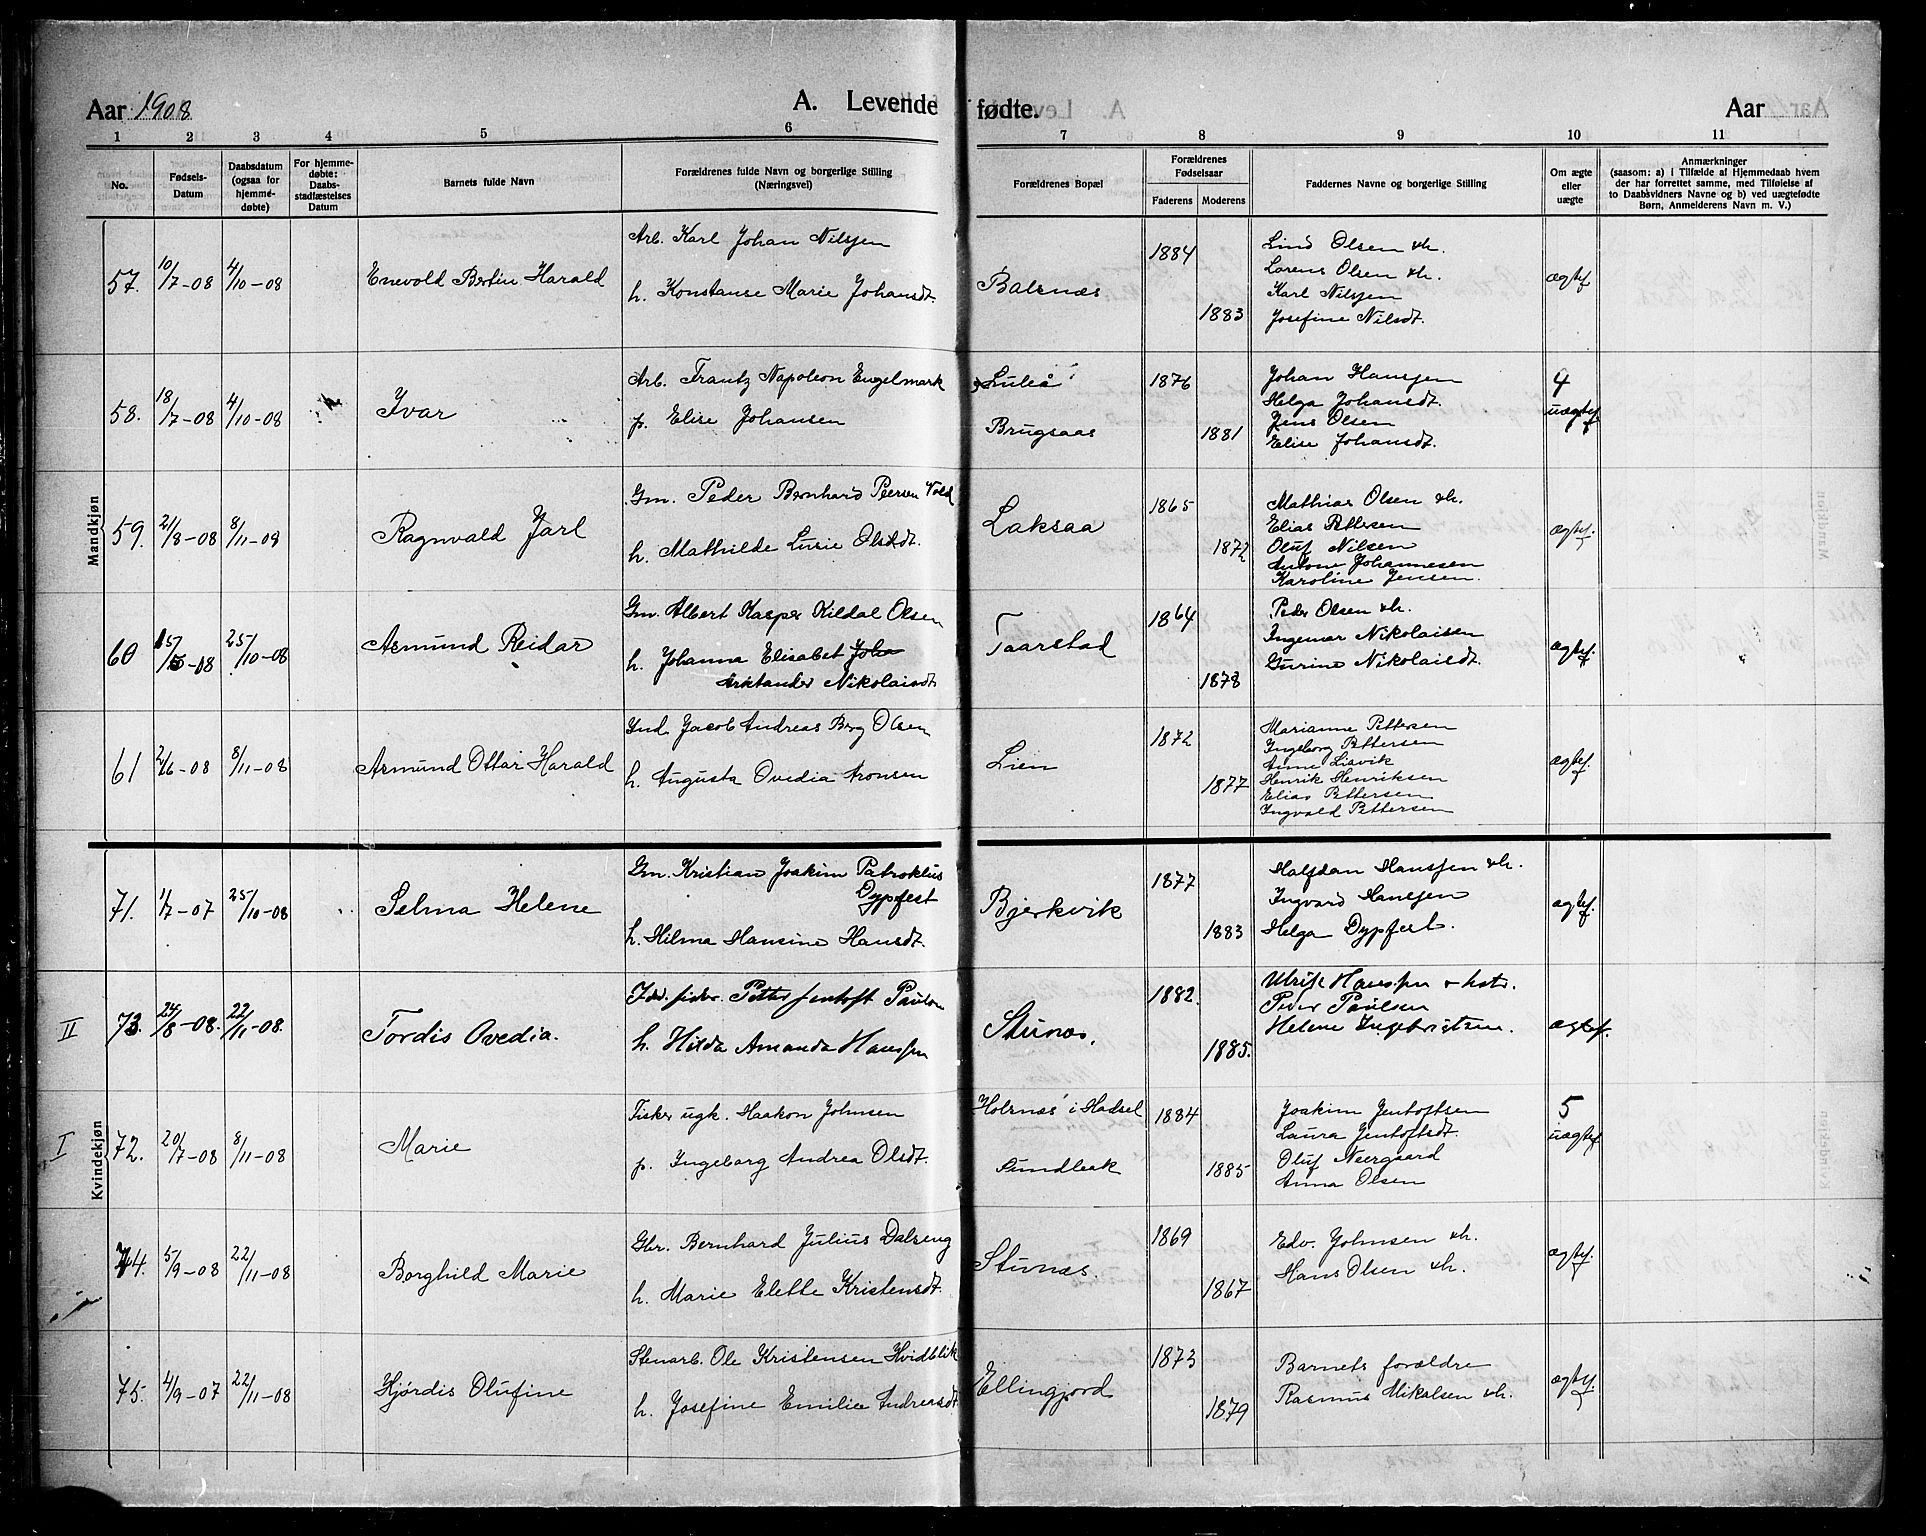 Aar 1908
A. Levende fødte.
Aar
1 2 3 4 5 6 7 8 9 10 11
No.
Fødsels-Datum
Daabsdatum (ogsaa for hjemmedøbte)
For hjemmedøbte: Daabsstadfæstelses Datum
Barnets fulde Navn
Forældrenes fulde Navn og borgerlige Stilling (Næringsvei)
Forældrenes Bopæl
Forældrenes Fødselsaar
Faderens Moderens
Faddernes Navne og borgerlige Stilling
Om ægte eller uægte
Anmærkninger
(saasom: a) i Tilfælde af Hjemmedaab hvem
der har forrettet samme, med Tilføielse af
to Daabsvidners Navne og b) ved uægtefødte
Børn, Anmelderens Navn m. V.)
Mandkjøn
57. 10/7-08 4/10-08 Enevold Bertin Harald
Arb. Karl Johan Nilsjen
h. Konstanse Marie Johansdt.
Balsnæs
1884
1883
Lind Olsen &h.
Lorens Olsen &h.
Karl Nilsjen
Josefine Nilsdt.
ægtef
58. 18/7-08 4/10-08 Ivar
Arb. Frantz Napoleon Engelmark
p. Elise Johansen
Luleå
Brugsaas
1876
1881
Johan Hansjen
Helga Johansdt.
Jens Olsen
Elise Johansdt.
4
uægtef
59. 21/8-08 8/11-08 Ragnvald Jarl
Gm. Peder Bernhard Peersen Vold
h. Mathilde Lusie Olsdt.
Laksaa
1865
1872
Mathias Olsen &h.
Elias Pettersen
Oluf Nilsen
Antone Johannesen
Karoline Jensen.
ægtef.
60 15/5-08 25/10-08 Asmund Reidar
Gm. Albert Kasper Kildal Olsen
h. Johanna Elisabet Joha
Arktander Nikolaisdt.
Taarstad
1864
1878
Peder Olsen &h.
Ingemar Nikolaisen
Gurine Nikolaisdt.
ægtef.
61 2/6-08 8/11-08 Asmund Ottar Harald
Ind. Jacob Andreas Berg Olsen
h. Augusta Ovedia Aronsen
Lien
1872
1877
Marianne Pettersen
Ingeborg Pettersen
Anne Liavik
Henrik Henriksen
Elias Pettersen
Ingvald Pettersen
ægtef.
Kvindekjøn
71. 1/7-07 25/10-08 Selma Helene
Gm. Kristian Joakim Patroklus
Dypfest
h. Hilma Hansine Hansdt.
Bjerkvik
1877
1883
Halfdan Hansjen &h.
Ingvard Hansjen
Helga Dypfest.
ægtef.
II 73. 24/8-08. 22/11-08. Tordis Ovedia.
Petter Jentoft Paulsen
h. Hilda Amanda Hanssen
Stunæs.
1882.
1885.
Ulrik Hanssen &
Peder Paulsen
Helene Ingebrigtsen.
ægtef.
I 72. 20/7-08 8/11-08 Marie
Fisker ugk. Haakon Johnsen
p. Ingeborg Andrea Olsdt.
Holsnæs i Hadsel
1884
1885
Joakim Jentoftsen
Laura Jentoftsdt.
Oluf Neergaard
Anna Olsen
5
uægtef
74. 5/9-08 22/11-08 Borghild Marie
Gbr. Bernhard Julius Dalseng
h. Marie Elette Kristensdt.
Stunæs.
1869
1867
Edv. Johnsen &h.
Hans Olsen &h.
ægtef.
75. 4/9-07 22/11-08 Hjørdis Olufine
Stenarb. Ole Kristensen Hvidblik
h. Josefine Emilie Andreasdt.
Ellingjord
1873
1879
Barnets forældre
Rasmus Mikalsen &h.
ægtef.